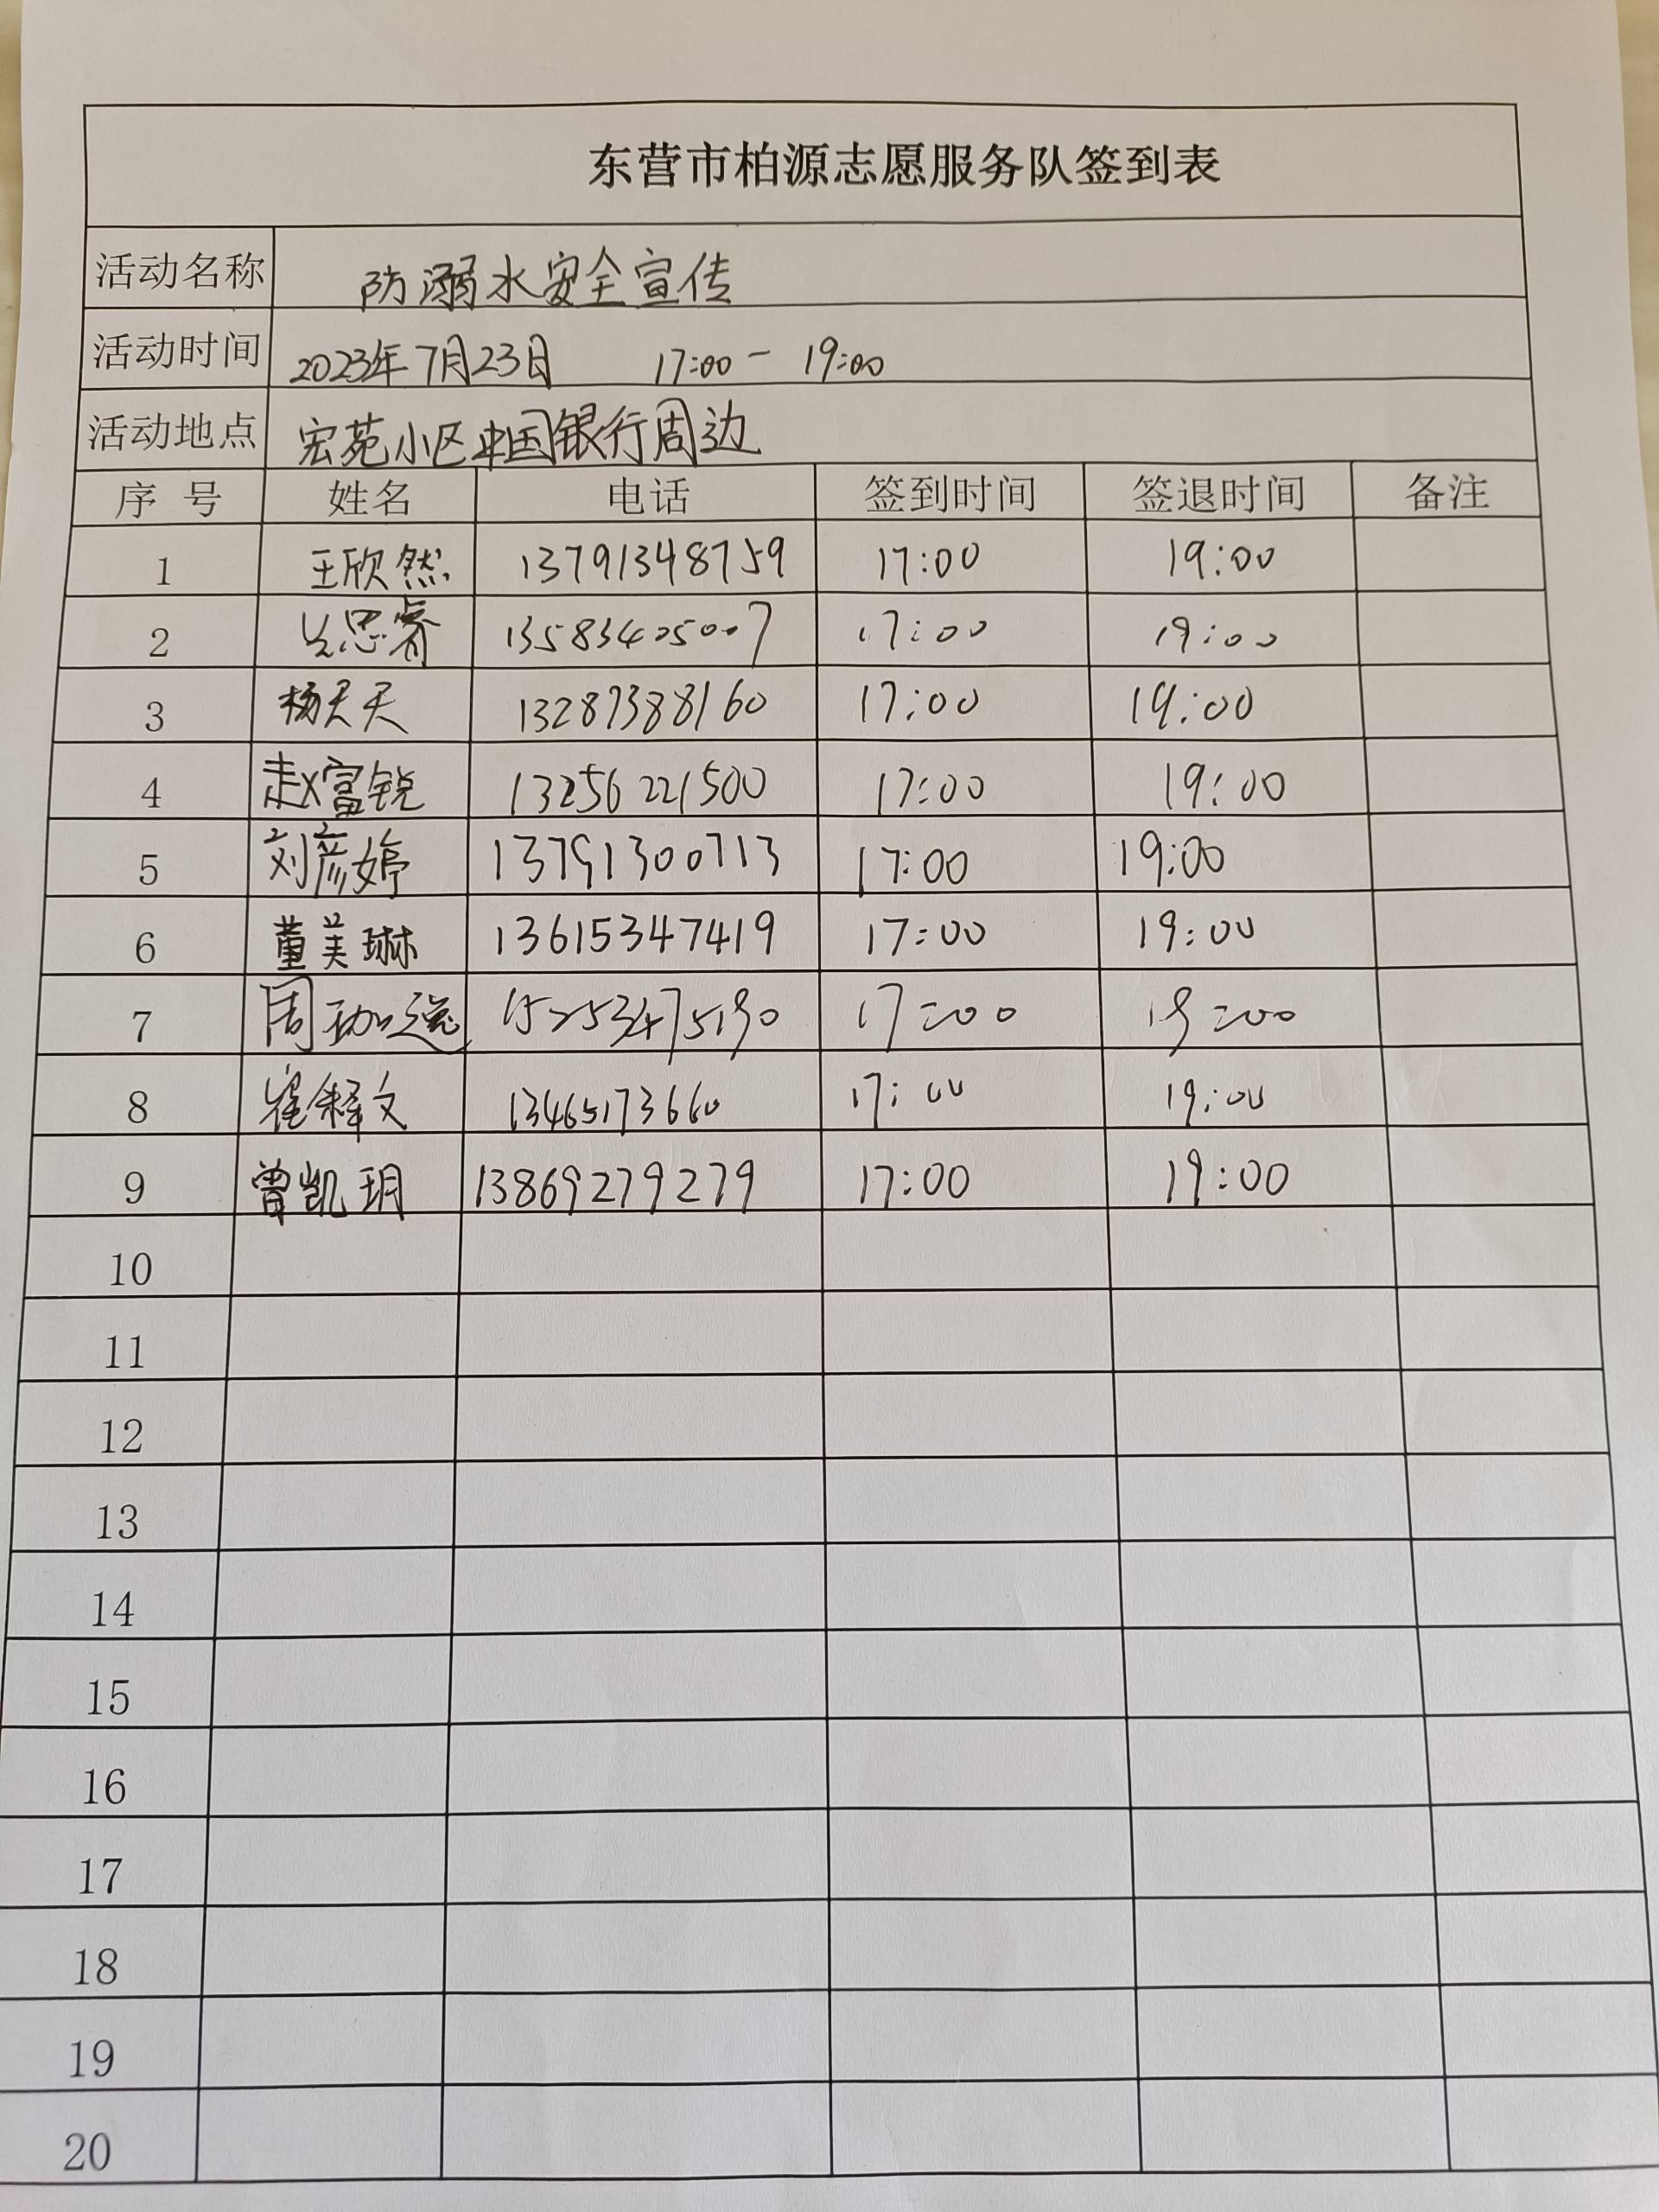 东营市柏源志愿服务队签到表
活动名称 防溺水安全宣传
活动时间 2023年7月23日 17:00-19:00
活动地点 宏苑小区中国银行周边
序号 姓名 电话 签到时间 签退时间 备注
1 王欣然 13791348759 17:00 19:00
2 思睿 13583405007 17:00 19:00
3 杨天天 13287388160 17:00 19:00
4 赵富锐 13256221500 17:00 19:00
5 刘彦婷 13791300713 17:00 19:00
6 董美琳 13615347419 17:00 19:00
7 周 15253475190 17:00 19:00
8 崔释文 13465173660 17:00 19:00
9 曾凯玥 13869279279 17:00 19:00
10
11
12
13
14
15
16
17
18
19
20